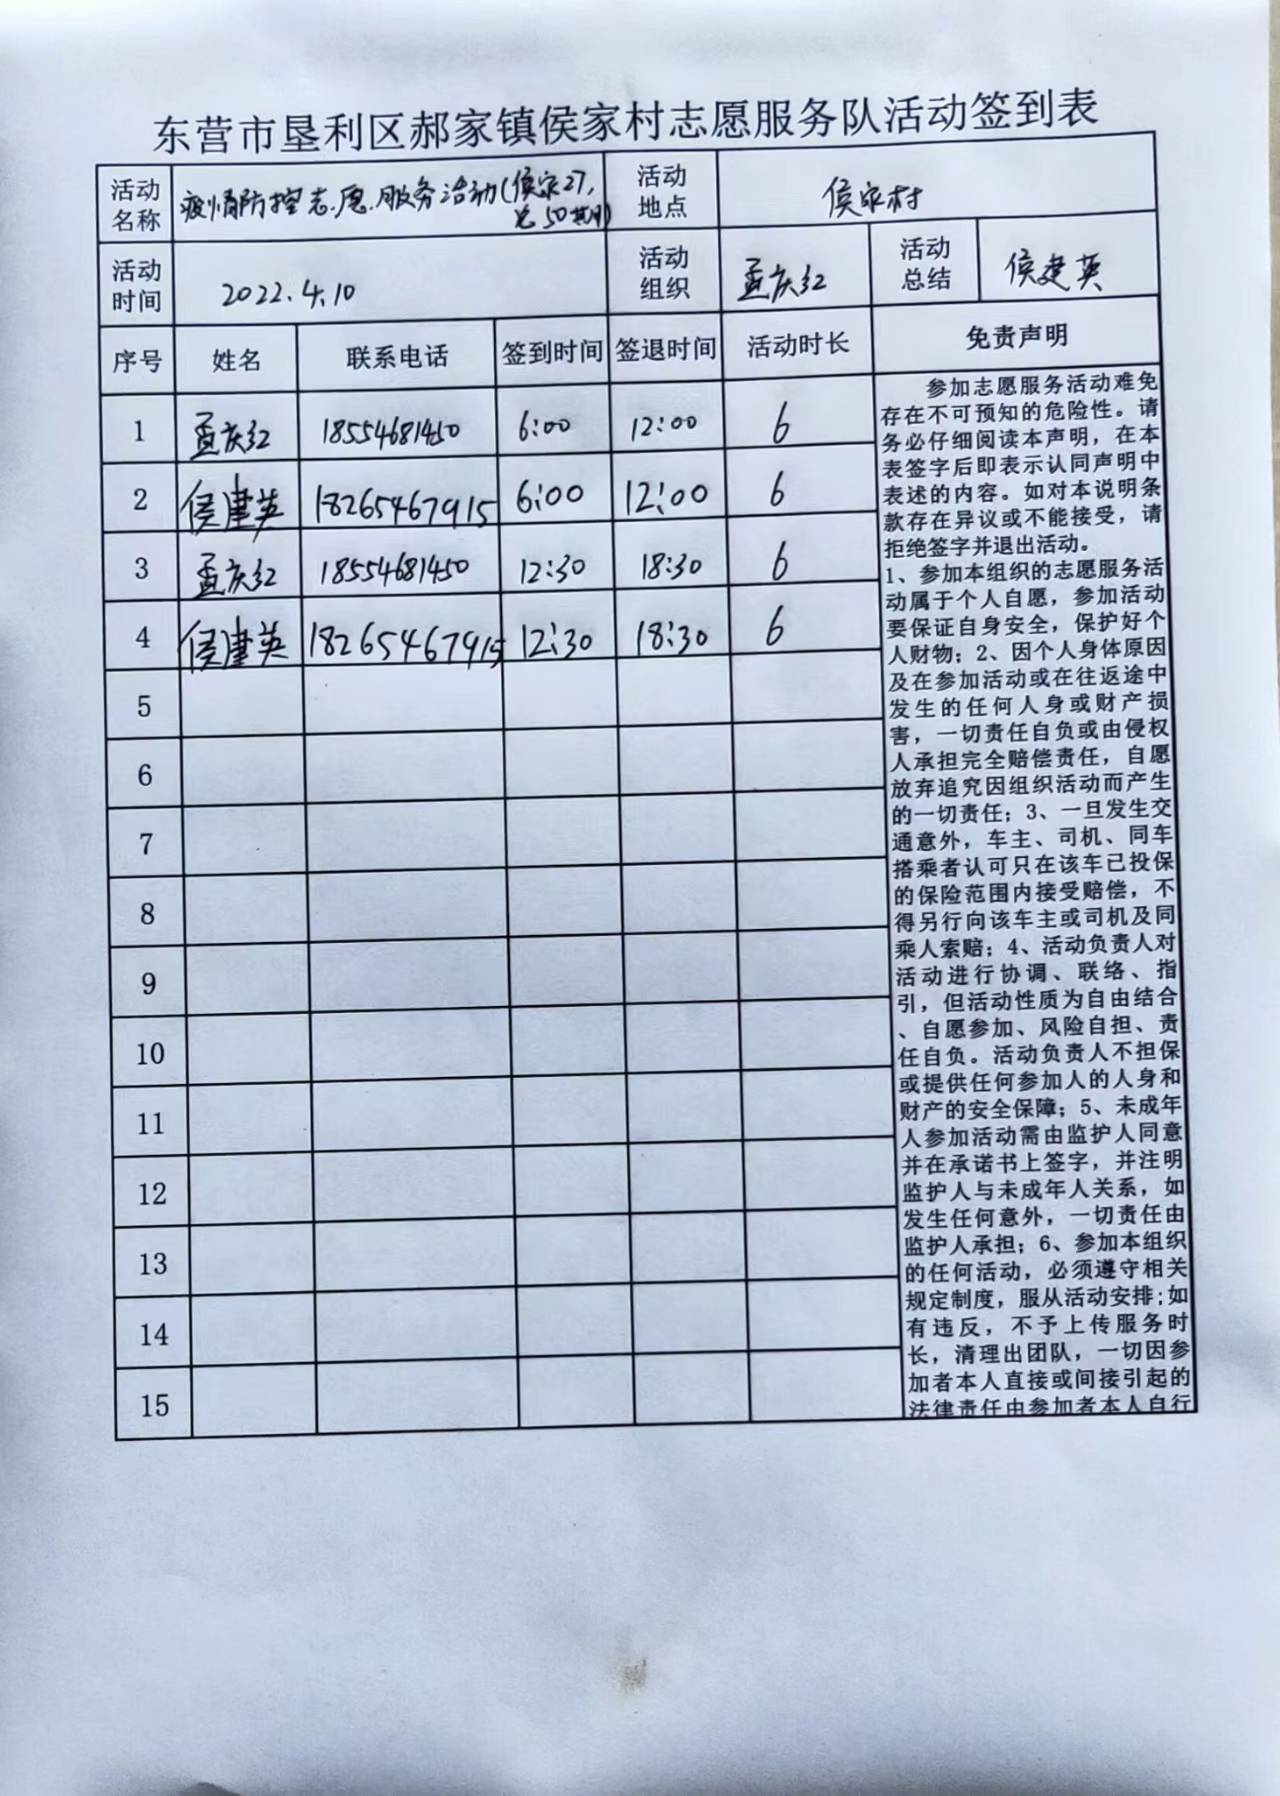 东营市垦利区郝家镇侯家村志愿服务队活动签到表
活动名称 疫情防控志愿服务活动(侯家27,总50期) 活动地点 侯家村
活动时间 2022.4.10 活动组织 孟庆红 活动总结 侯建英
序号 姓名 联系电话 签到时间 签退时间 活动时长 免责声明
1 孟庆红 18554681450 6:00 12:00 6
2 侯建英 18265467915 6:00 12:00 6
3 孟庆红 18554681450 12:30 18:30 6
4 侯建英 18265467915 12:30 18:30 6
5
6
7
8
9
10
11
12
13
14
15
参加志愿服务活动难免
存在不可预知的危险性。请
务必仔细阅读本声明，在本
表签字后即表示认同声明中
表述的内容。如对本说明条
款存在异议或不能接受，请
拒绝签字并退出活动。
1、参加本组织的志愿服务活
动属于个人自愿，参加活动
要保证自身安全，保护好个
人财物；2、因个人身体原因
及在参加活动或在往返途中
发生的任何人身或财产损
害，一切责任自负或由侵权
人承担完全赔偿责任，自愿
放弃追究因组织活动而产生
的一切责任；3、一旦发生交
通意外，车主、司机、同车
搭乘者认可只在该车已投保
的保险范围内接受赔偿，不
得另行向该车主或司机及同
乘人索赔；4、活动负责人对
活动进行协调、联络、指
引，但活动性质为自由结合
、自愿参加、风险自担、责
任自负。活动负责人不担保
或提供任何参加人的人身和
财产的安全保障；5、未成年
人参加活动需由监护人同意
并在承诺书上签字，并注明
监护人与未成年人关系，如
发生任何意外，一切责任由
监护人承担；6、参加本组织
的任何活动，必须遵守相关
规定制度，服从活动安排;如
有违反，不予上传服务时
长，清理出团队，一切因参
加者本人直接或间接引起的
法律责任由参加者本人自行